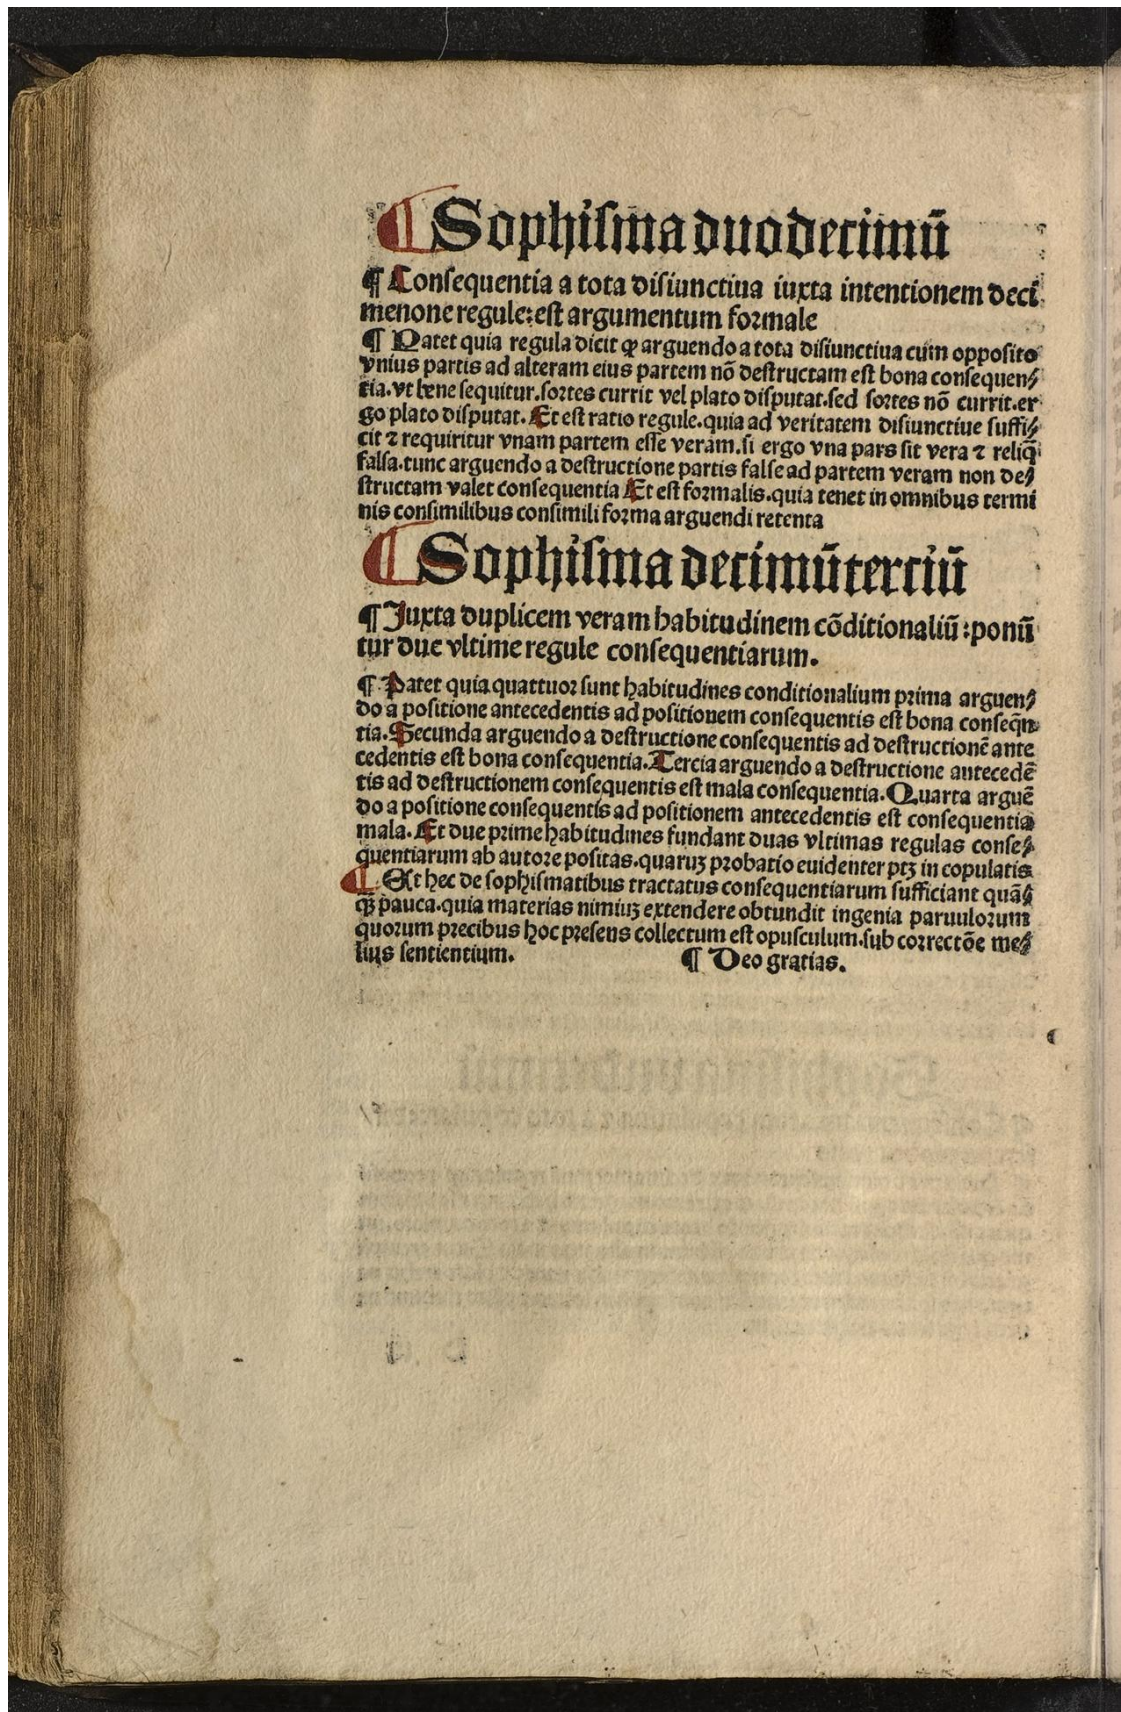 ¶ Sophisma duodecimū
¶ Consequentia a tota disiunctiua iuxta intentionem deci
menone regule: est argumentum formale
¶ Patet quia regula dicit ꝙ arguendo a tota disiunctiua cum opposito
vnius partis ad alteram eius partem nō destructam est bona consequen⸗
tia. vt bene sequitur. sortes currit vel plato disputat. sed sortes nō currit. er
go plato disputat. Et est ratio regule. quia ad veritatem disiunctiue suffi⸗
cit ⁊ requiritur vnam partem esse veram. si ergo vna pars sit vera ⁊ reliq̄
falsa. tunc arguendo a destructione partis false ad partem veram non de⸗
structam valet consequentia Et est formalis. quia tenet in omnibus termi
nis consimilibus consimili forma arguendi retenta
¶ Sophisma decimūterciū
¶ Iuxta duplicem veram habitudinem cōditionaliū: ponū
tur due vltime regule consequentiarum.
¶ Patet quia quattuor sunt habitudines conditionalium prima arguen⸗
do a positione antecedentis ad positionem consequentis est bona conseq̄n
tia. Secunda arguendo a destructione consequentis ad destructionē ante
cedentis est bona consequentia. Tercia arguendo a destructione antecedē
tis ad destructionem consequentis est mala consequentia. Quarta arguē
do a positione consequentis ad positionem antecedentis est consequentia
mala. Et due prime habitudines fundant duas vltimas regulas conse⸗
quentiarum ab autore positas. quaruꝫ probatio euidenter ptꝫ in copulatis
¶ At hec de sophismatibus tractatus consequentiarum sufficiant quā⸗
qꝫ pauca. quia materias nimiuꝫ extendere obtundit ingenia paruulorum
quorum precibus hoc presens collectum est opusculum. sub correctōe me⸗
lius sentientium. ¶ Deo gratias.